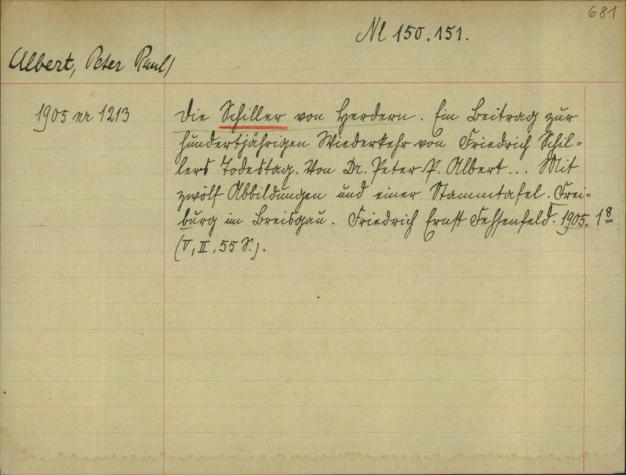 681
Nl 150.151.
Albert, Peter Paul)
1905 nr 1213
Die Schiller von Herdern. Ein Beitrag zur
hundertjährigen Wiederkehr von Friedrich Schil-
lers Todestag. Von Dr. Peter P. Albert... Mit
zwölf Abbildungen und einer Stammtafel. Frei-
burg im Breisgau. Friedrich Ernst Fehsenfeld. 1905. 18
(V, II, 55 S.).